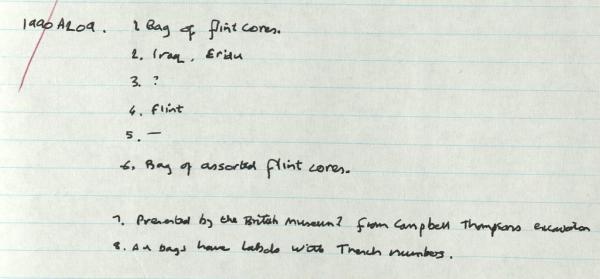 1990 A209. 1 Bag of flint cores.
2. Iraq, Eridu
3. ?
4. Flint
5. —
6. Bag of assorted flint cores.
7. Presented by the British Museum? from Campbell Thompsons excavation
8. All bags have labels with Trench numbers.